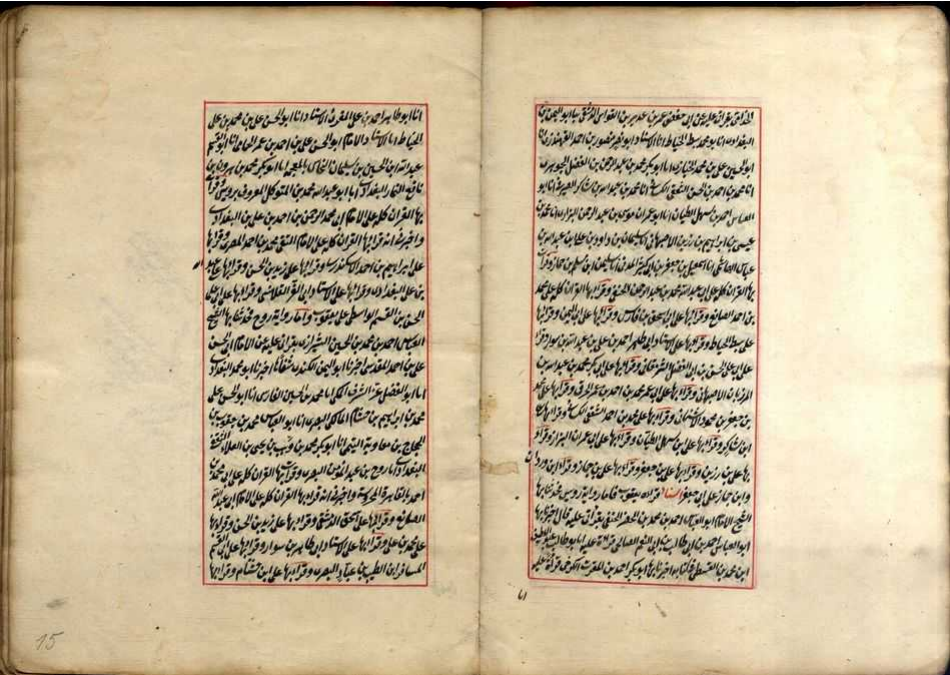 بقراءتي عليه عن ابي حفص عمر بن عبد المنعم بن القواس الدمشقي انا ابو اليمن
البغدادي انا ابو محمد سبط الخياط انا الاستاد ابو نصر منصور بن احمد القهندزي انا
ابو الحسين علي بن محمد الخبازي انا ابو بكر محمد بن عبد الرحمن بن الفضل الجوهري
انا محمد بن احمد بن الحسن الثقفي الكسائي انا محمد بن عبد الله بن شاكر الصيرفي انا ابو
العباس احمد بن سهل الطيان انا ابو عمران موسى بن عبد الرحمن البزاز انا محمد بن
عيسى بن ابراهيم بن رزين الاصبهاني انا سليمان بن داود بن علي بن عبد الله بن
عباس الهاشمي انا اسمعيل بن جعفر بن ابي كثير المدني انا سليمن بن مسلم بن جماز وقرات
بها القران كله على ابي عبد الله محمد بن عبد الرحمن الحنفي وقرا بها القران كله على محمد
بن احمد الصايغ وقرا بها على ابي اسحق بن فارس وقرا بها على ابي اليمن وقرا بها
على سبط الخياط وقرا بها على الاستاد ابي طاهر احمد بن علي بن عبد الله بن سوار وقرا بها
على ابي علي الحسن بن ابي الفضل الشرمقاني وقرا بها على ابي بكر محمد بن عبد الله بن
المرزبان الاصبهاني وقرا بها على ابي عمر محمد بن احمد بن عمر الخرقي وقرا بها على محمد
بن جعفر بن محمود الاشناني وقرا بها على محمد بن احمد الثقفي الكسائي وقرا بها على
ابن شاكر وقرا بها على ابن سهل الطيان وقرا بها على ابي عمران البزاز وقرا
بها على بن رزين وقرا بها على بن جعفر وقرا بها على بن جماز وقرا ابن وردان
وابن جماز على ابي جعفر اسناد قراءة يعقوب فاما رواية رويس فحدثنا بها
الشيخ الامام ابو العباس احمد بن محمد بن الخضر الحنفي بقراءتي عليه قال اخبرنا بها
ابو العباس احمد بن ابي طالب بن ابي النعم الصالحي قراءة عليه انا ابو طالب عبد اللطيف
ابن محمد بن القبيطي في كتابه اخبرنا بها ابو بكر احمد بن المقرب الكرخي قراءة عليه
انا
انا ابو طاهر احمد بن علي المقرئ الاستاد انا ابو الحسن علي بن محمد بن علي
الخياط انا الاستاد والامام ابو الحسن علي بن احمد بن عمر الحمامي انا ابو القسم
عبد الله بن الحسين بن سليمان النخاس بالمعجمة انا ابو بكر محمد بن هرون بن
نافع التمار البغدادي انا ابو عبد الله محمد بن المتوكل المعروف برويس وقرات
بها القران كله على الامام ابي محمد الرحمن بن احمد بن علي بن البغدادي
واخبرني انه قرا بها القران كله على الامام التقي محمد بن احمد المصري وقرا بها
على ابراهيم بن احمد الاسكندري وقرا بها على زيد بن الحسن وقرا بها على عبد الله
بن علي البغدادي وقرا بها على الاستاد ابي العز القلانسي وقرا بها على ابي علي
الحسن بن القسم الواسطي على يعقوب واما رواية روح فحدثنا بها الشيخ
العباس احمد بن محمد بن الحسين الشيرازي بقراءتي عليه عن الامام ابي الحسن
علي بن احمد المقدسي اخبرنا ابو اليمن الكندي شفاها اخبرنا ابو محمد البغدادي
انا ابو الفضل عز الشرف المكي انا محمد بن الحسين الفارسي انا ابو الحسن علي
محمد بن ابراهيم بن خشنام المالكي البصري انا ابو العباس محمد بن يعقوب بن
الحجاج بن معاوية التيمي انا ابو بكر محمد بن وهب بن يحيى بن العلاء الثقفي
البغدادي انا روح بن عبد المؤمن البصري وقرات بها القران كله على ابي محمد بن
احمد بالقاهرة المحروسة واخبرني انه قرا بها القران كله على الامام ابي عبد الله
الصايغ وقرا بها على ابي اسحق الدمشقي وقرا بها على زيد بن الحسن وقرا بها
على محمد بن علي وقرا بها على الاستاد ابي طاهر بن سوار وقرا بها على ابي القسم
المسافر ابن الطيب بن عباد البصري وقرا بها على ابن خشنام وقرا بها
15